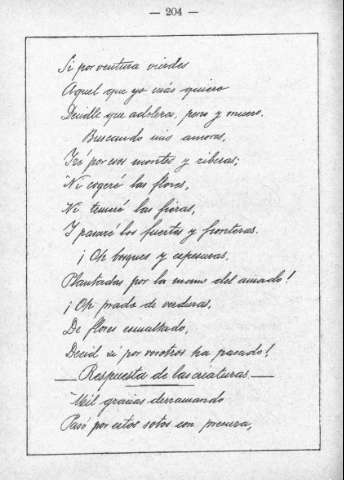 — 204 —
Si por ventura vierdes
Aquel que yo más quiero
Decidle que adolezco, peno y muero.
Buscando mis amores,
Iré por esos montes y riberas;
Ni cogeré las flores,
Ni temeré las fieras,
Y pasaré los fuertes y fronteras.
¡Oh bosques y espesuras,
Plantadas por la mano del amado!
¡Oh prado de verduras,
De flores esmaltado,
Decid si por vosotros ha pasado!
— Respuesta de las criaturas —
Mil gracias derramando
Pasó por estos sotos con presura,